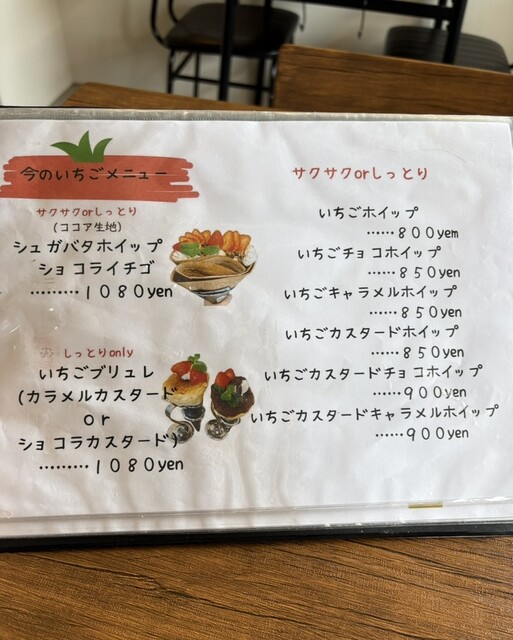 今のいちごメニュー
サクサクorしっとり
(ココア生地)
シュガバタホイップ
ショコライチゴ
………１０８０yen
しっとりonly
いちごブリュレ
(カラメルカスタード
or
ショコラカスタード)
………１０８０yen
サクサクorしっとり
いちごホイップ
……８００yem
いちごチョコホイップ
……８５０yen
いちごキャラメルホイップ
……８５０yen
いちごカスタードホイップ
……８５０yen
いちごカスタードチョコホイップ
……９００yen
いちごカスタードキャラメルホイップ
……９００yen